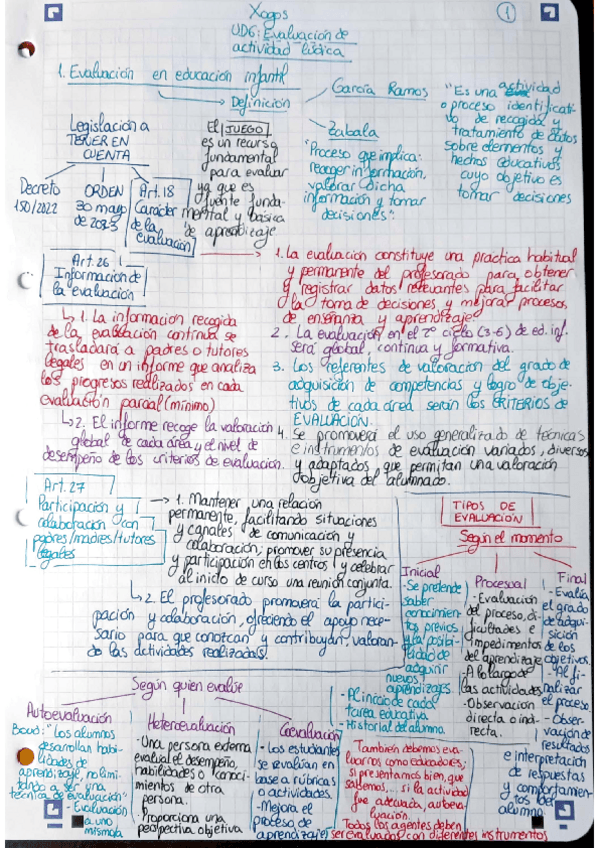 Xogos
1
UD6: Evaluación de
actividad lúdica
1. Evaluación en educación infantil
Definición
García Ramos
"Es una actividad
o proceso identificati-
vo de recogida y
tratamiento de datos
sobre elementos y
hechos educativos
cuyo objetivo es
tomar decisiones
Zabala
"Proceso que implica:
recoger información,
valorar dicha
información y tomar
decisiones".
El JUEGO
es un recurso
fundamental
para evaluar
ya que es
fuente funda-
mental y básica
de aprendizaje
Legislación a
TENER EN
CUENTA
Decreto
150/2022
ORDEN
30 mayo
de 2023
Art. 18
Carácter
de la
evaluación
1. La evaluación constituye una práctica habitual
y permanente del profesorado para obtener
y registrar datos relevantes para facilitar
la toma de decisiones y mejorar procesos
de enseñanza y aprendizaje.
2. La evaluación en el 2º ciclo (3-6) de ed. inf.
será global, continua y formativa.
3. Los referentes de valoración del grado de
adquisición de competencias y logro de obje-
tivos de cada área serán los CRITERIOS DE
EVALUACIÓN.
4. Se promoverá el uso generalizado de técnicas
e instrumentos de evaluación variados, diversos
y adaptados que permitan una valoración
objetiva del alumnado.
Art. 26
Información de
la evaluación
1. La información recogida
de la evaluación continua se
trasladará a padres o tutores
legales en un informe que analiza
los progresos realizados en cada
evaluación parcial (mínimo)
2. El informe recoge la valoración
global de cada área y el nivel de
desempeño de los criterios de evaluación.
Art. 27
Participación y
colaboración con
padres/madres/tutores
legales
1. Mantener una relación
permanente, facilitando situaciones
y canales de comunicación y
colaboración; promover su presencia
y participación en los centros y celebrar
al inicio de curso una reunión conjunta.
2. El profesorado promoverá la partici-
pación y colaboración, ofreciendo el apoyo nece-
sario para que conozcan y contribuyan, valoran-
do las actividades realizadas.
TIPOS DE
EVALUACIÓN
Según el momento
Inicial
- Se pretende
saber
conocimien-
tos previos
y la posibi-
lidad de
adquirir
nuevos
aprendizajes
- Al inicio de cada
tarea educativa
- Historial del alumno.
Procesual
- Evaluación
del proceso, di-
ficultades e
impedimentos
del aprendizaje
- A lo largo de
las actividades
- Observación
directa o indi-
recta.
Final
- Evalúa
el grado
de adqui-
sición
de los
objetivos.
- Al fi-
nalizar
el proceso
- Obser-
vación de
resultados
e interpretación
de respuestas
y comportamien-
tos del
alumno.
Según quien evalúe
Autoevaluación
Boud: "Los alumnos
desarrollan habi-
lidades de
aprendizaje, no limi-
tando a ser una
técnica de evaluación"
- Evaluación
a uno
mismo/a
Heteroevaluación
- Una persona externa
evalúa el desempeño,
habilidades o conoci-
mientos de otra
persona.
- Proporciona una
perspectiva objetiva
Coevaluación
- Los estudiantes
se evalúan en
base a rúbricas
o actividades.
- Mejora el
proceso de
aprendizaje
También debemos eva-
luarnos como educadores;
si presentamos bien, que
sabemos... si la actividad
fue adecuada, autoeva-
luación.
Todos los agentes deben
ser evaluados con diferentes instrumentos